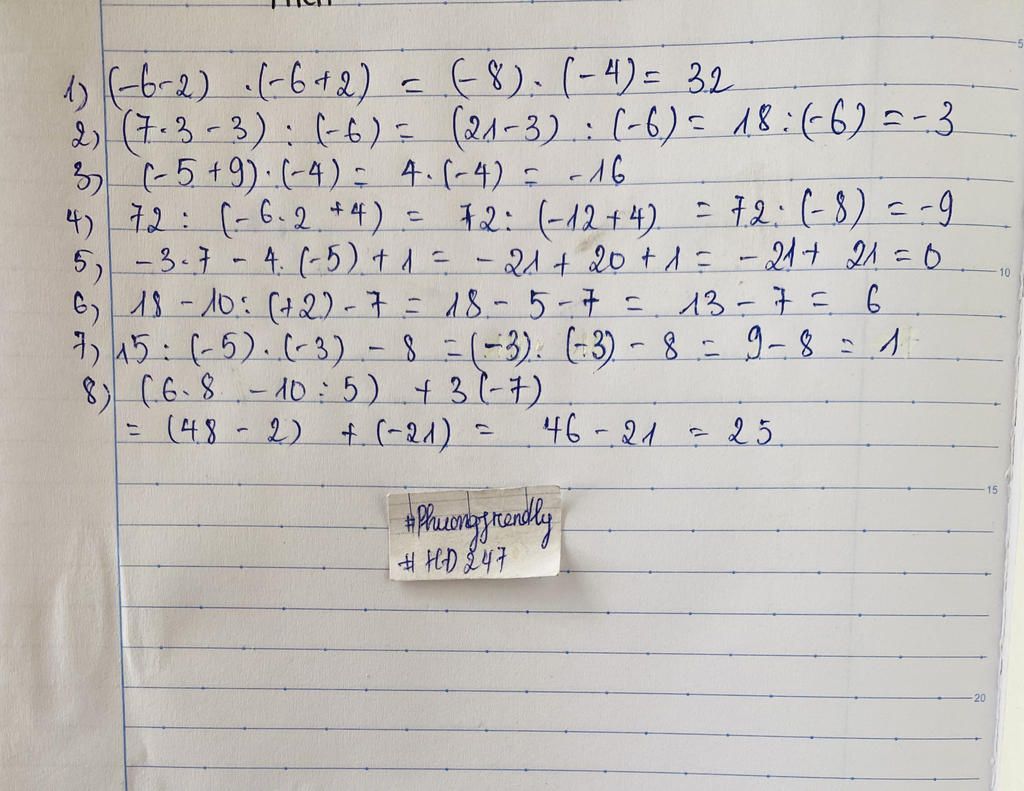 1) (-6-2) . (-6+2) = (-8) . (-4) = 32
2) (7.3-3) : (-6) = (21-3) : (-6) = 18 : (-6) = -3
3) (-5+9) . (-4) = 4 . (-4) = -16
4) 72 : (-6.2+4) = 72 : (-12+4) = 72 : (-8) = -9
5) -3.7 - 4.(-5) + 1 = -21 + 20 + 1 = -21 + 21 = 0
6) 18 - 10 : (+2) - 7 = 18 - 5 - 7 = 13 - 7 = 6
7) 15 : (-5) . (-3) - 8 = (-3) . (-3) - 8 = 9 - 8 = 1
8) (6.8 - 10 : 5) + 3(-7)
= (48 - 2) + (-21) = 46 - 21 = 25
#Phuongfrendly
#HD247
5
10
15
20